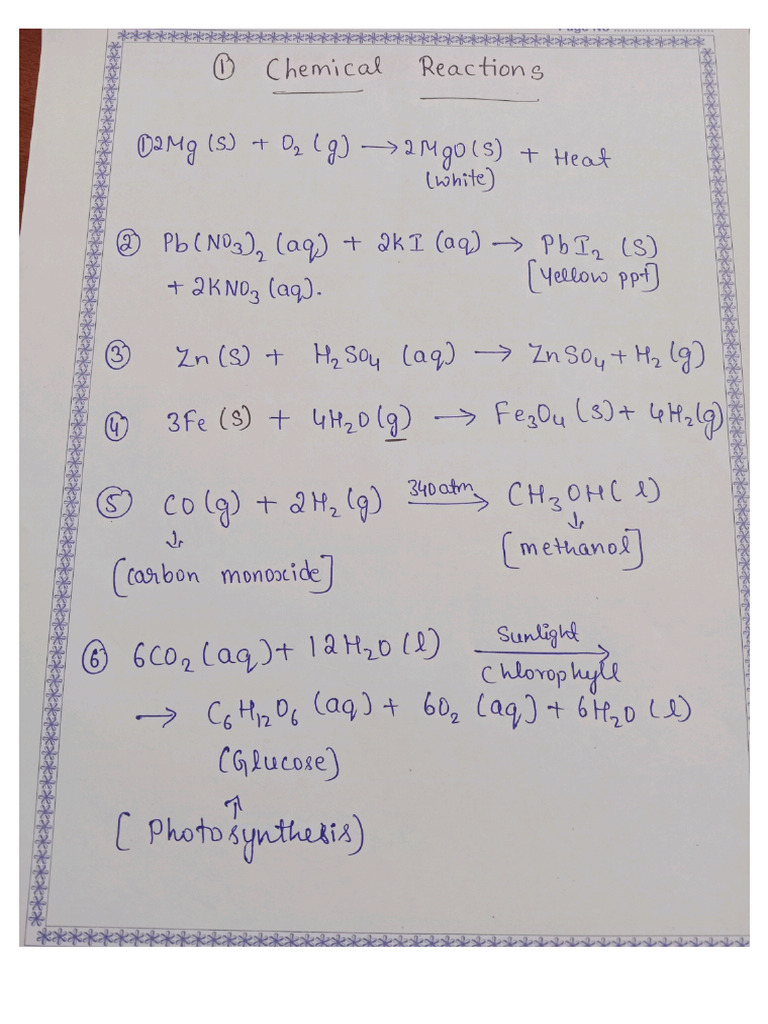 Page No
① Chemical Reactions
① 2Mg (s) + O₂ (g) → 2MgO (s) + Heat
(white)
② Pb(NO₃)₂ (aq) + 2KI (aq) → PbI₂ (s)
[Yellow ppt]
+ 2KNO₃ (aq).
③ Zn (s) + H₂SO₄ (aq) → ZnSO₄ + H₂ (g)
④ 3Fe (s) + 4H₂O (g) → Fe₃O₄ (s) + 4H₂ (g)
⑤ CO (g) + 2H₂ (g) 340 atm → CH₃OH (l)
↓ ↓
[carbon monoxide] [methanol]
⑥ 6CO₂ (aq) + 12H₂O (l) Sunlight →
Chlorophyll
→ C₆H₁₂O₆ (aq) + 6O₂ (aq) + 6H₂O (l)
(Glucose)
↑
[Photosynthesis)